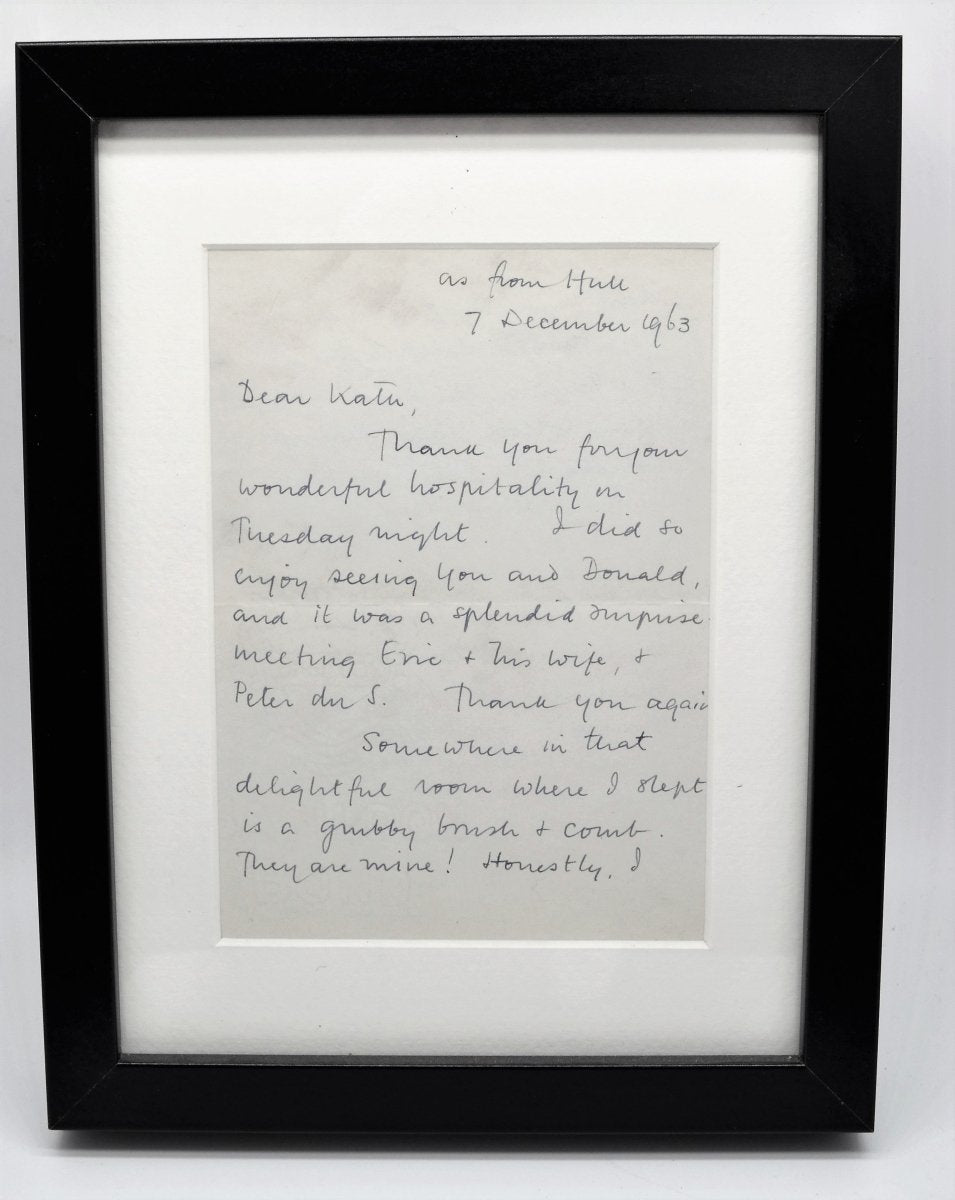 as from Hull
7 December 1963
Dear Kath,
Thank you for your
wonderful hospitality on
Tuesday night. I did so
enjoy seeing you and Donald,
and it was a splendid surprise
meeting Eric + his wife, +
Peter du S. Thank you again
Somewhere in that
delightful room where I slept
is a grubby brush + comb.
They are mine! Honestly, I